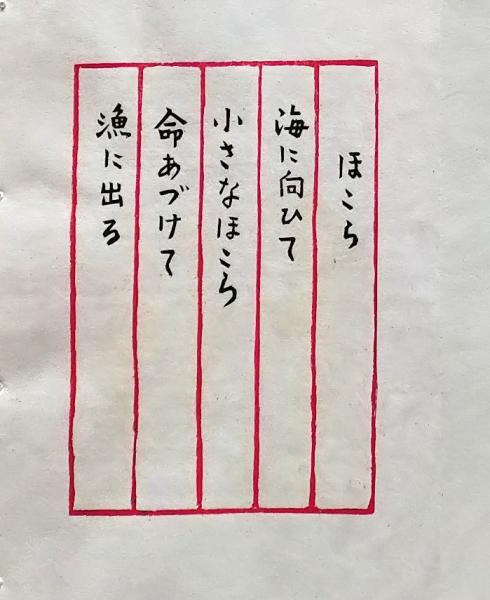 ほこら
海に向ひて
小さなほこら
命あづけて
漁に出る